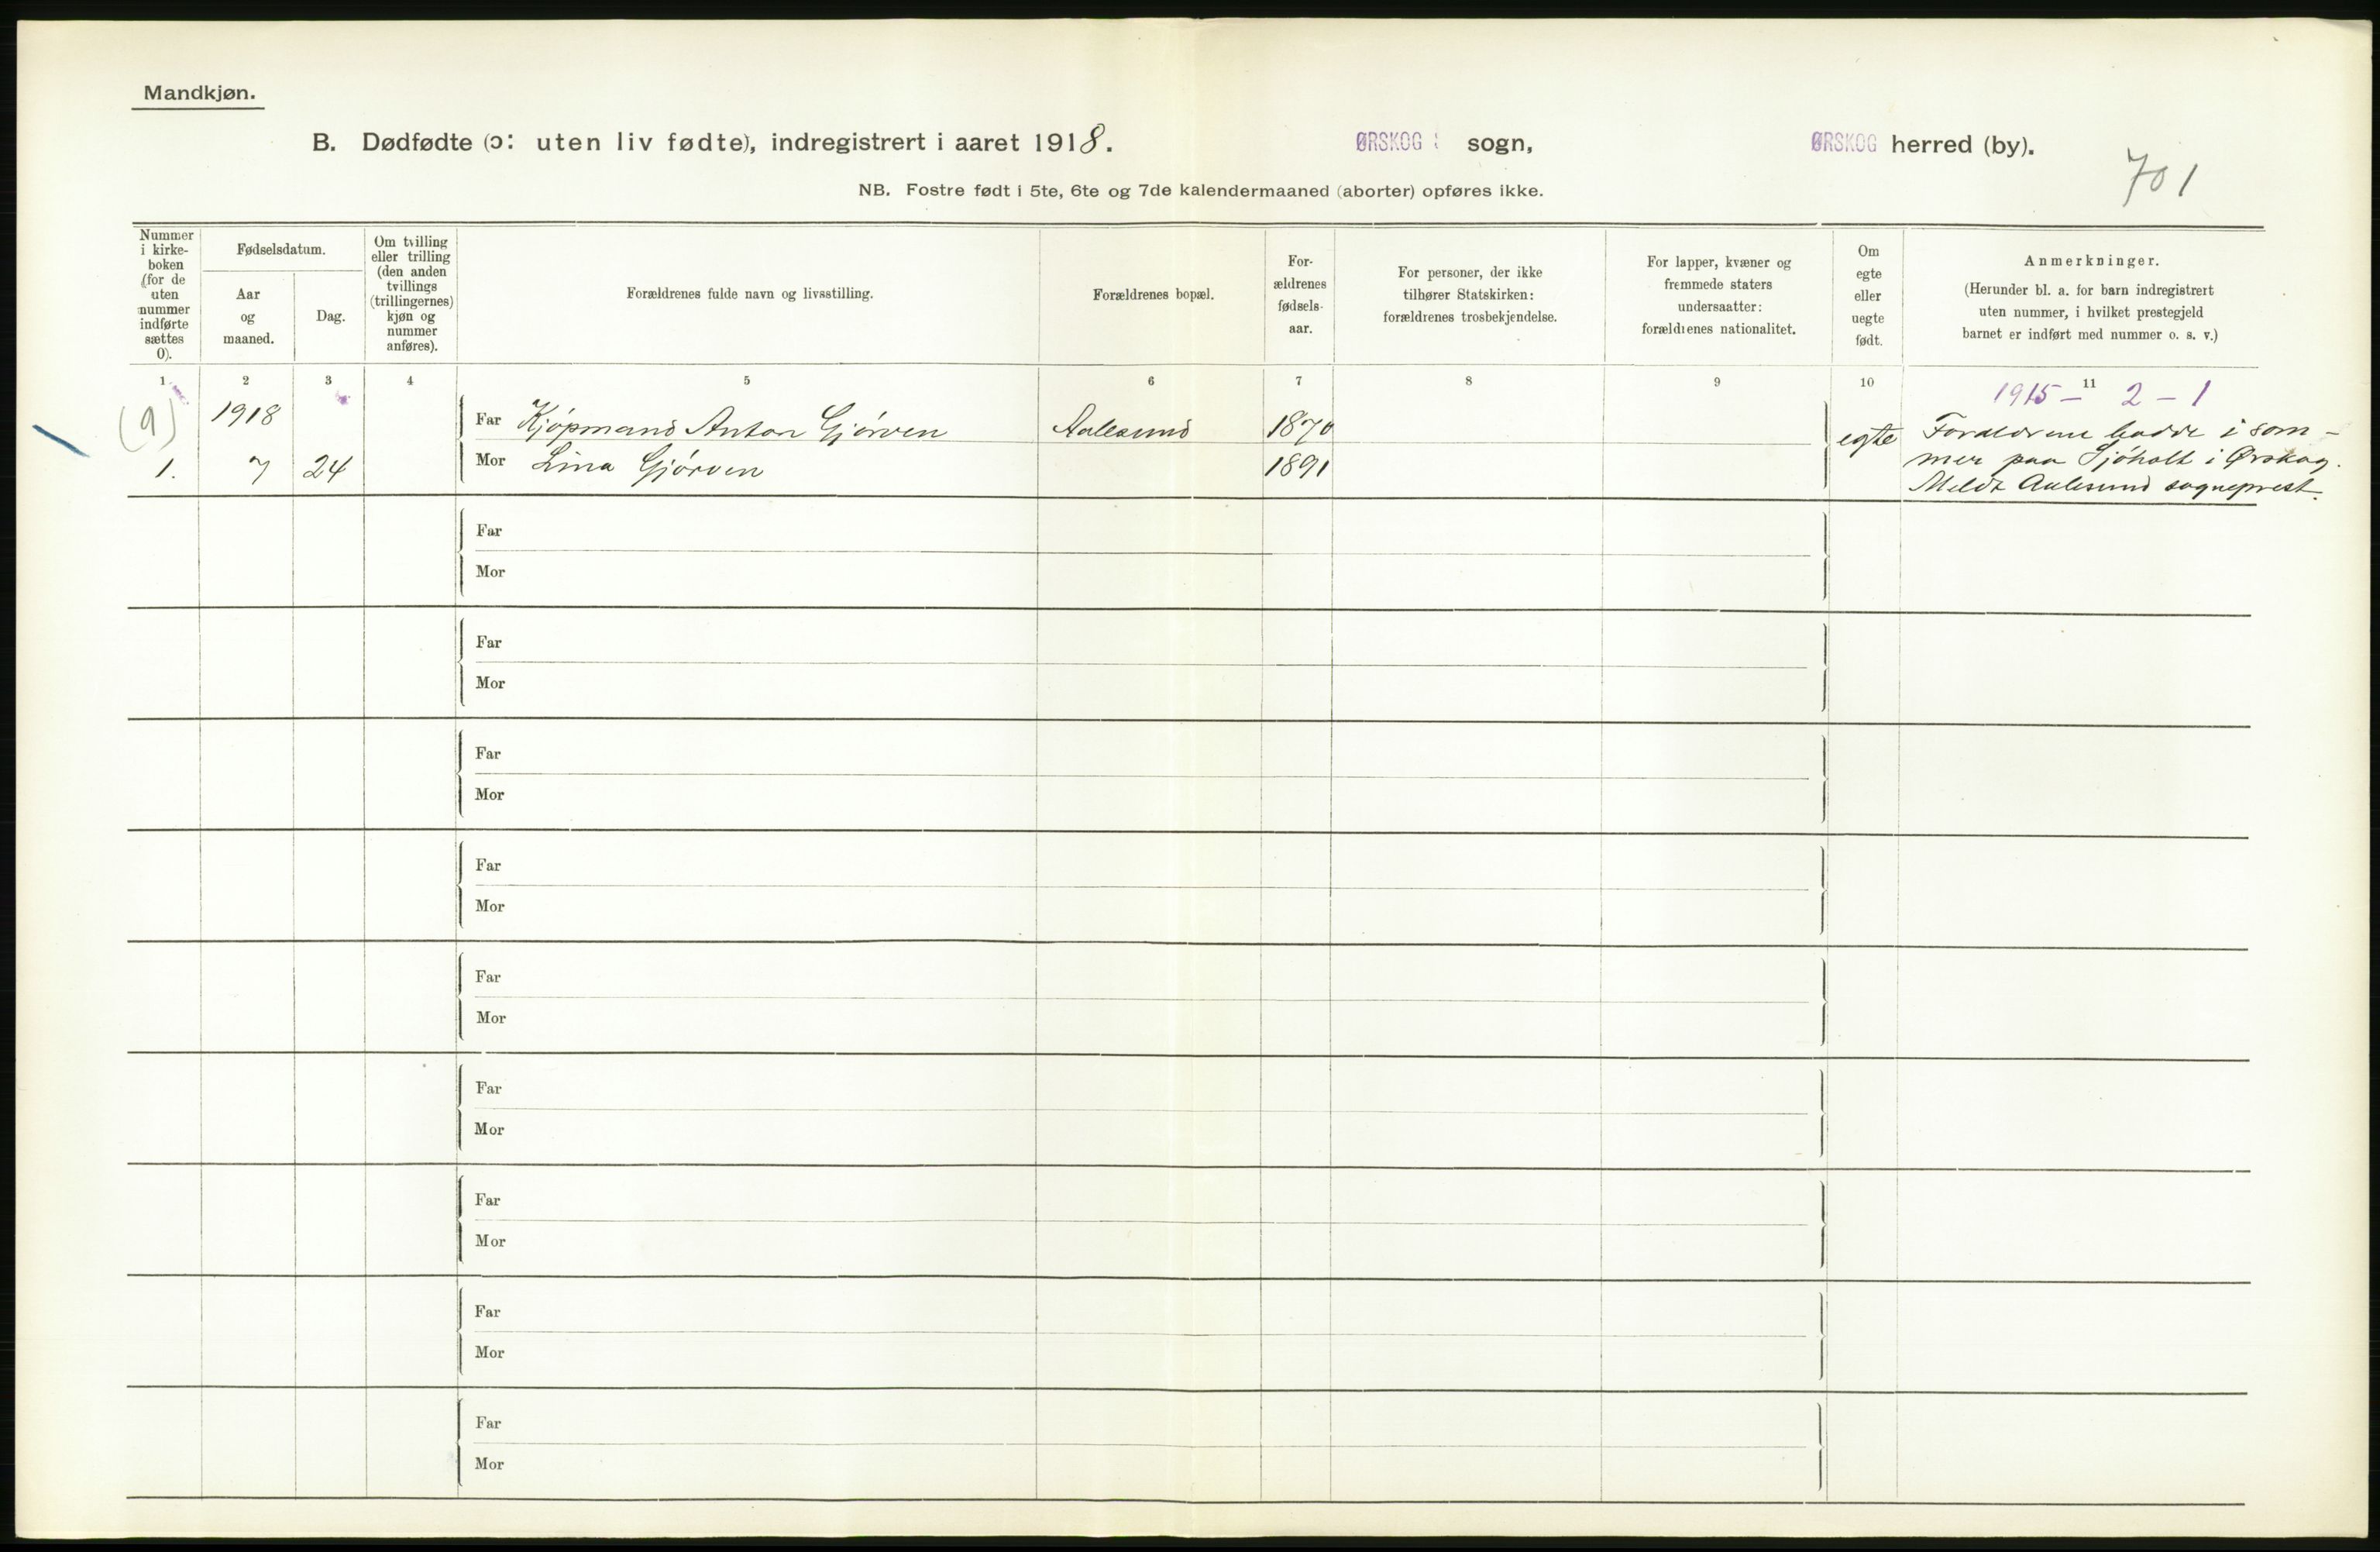 Mandkjøn.
B. Dødfødte (ɔ: uten liv fødte), indregistrert i aaret 1918. ØRSKOG sogn, ØRSKOG herred (by).
701
NB. Fostre født i 5te, 6te og 7de kalendermaaned (aborter) opføres ikke.
Nummer
i kirke-
boken
(for de
uten
nummer
indførte
sættes
0).
Fødselsdatum.
Aar
og
maaned.
Dag.
Om tvilling
eller trilling
(den anden
tvillings
(trillingernes)
kjøn og
nummer
anføres).
Forældrenes fulde navn og livsstilling.
Forældrenes bopæl.
For-
ældrenes
fødsels-
aar.
For personer, der ikke
tilhører Statskirken:
forældrenes trosbekjendelse.
For lapper, kvæner og
fremmede staters
undersaatter:
forældrenes nationalitet.
Om
egte
eller
uegte
født.
Anmerkninger.
(Herunder bl. a. for barn indregistrert
uten nummer, i hvilket prestegjeld
barnet er indført med nummer o. s. v.)
1 2 3 4 5 6 7 8 9 10 11
1915 – 2 – 1
(9) 1918 Far Kjøpmand Anton Gjørven Aalesund 1870 egte Forældrene bodde i som-
1. 7 24 Mor Lina Gjørven 1891 mer paa Sjøholt i Ørskog.
Meldt Aalesund sogneprest.
Far
Mor
Far
Mor
Far
Mor
Far
Mor
Far
Mor
Far
Mor
Far
Mor
Far
Mor
Far
Mor